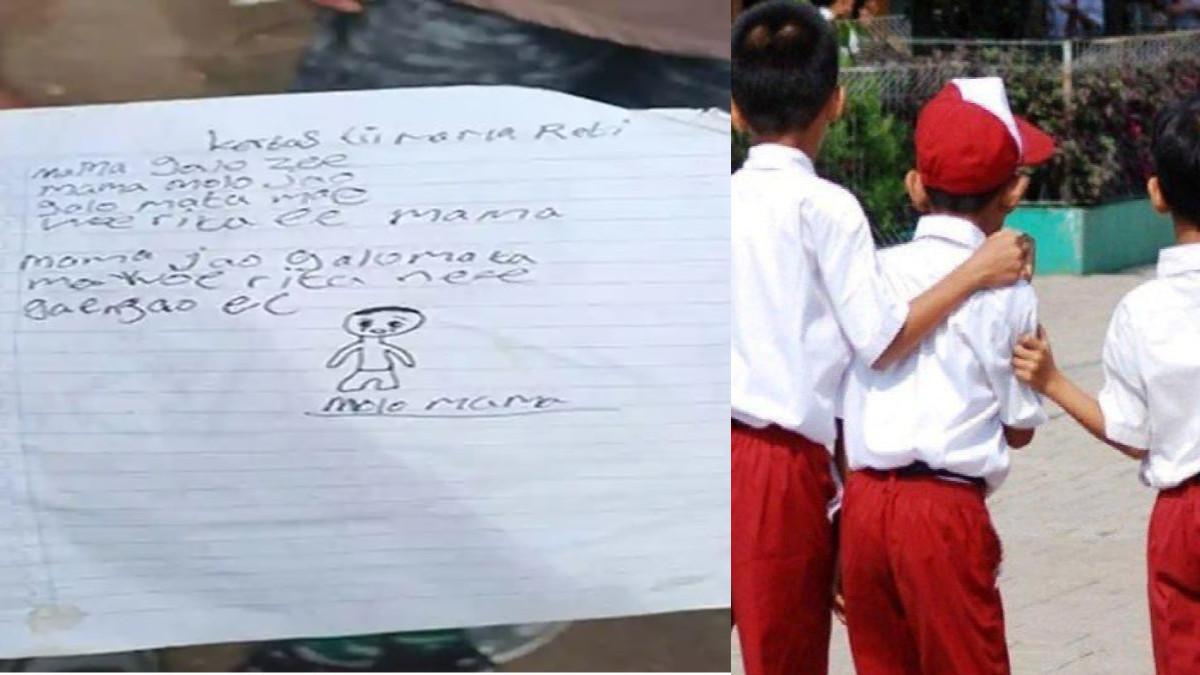 kertas Tii mama Reti
mama galo zee
mama molo jao
galo mata mae
woe rita ee mama
mama jao galo mata
mae woe rita nee
gae ngao ee
molo mama